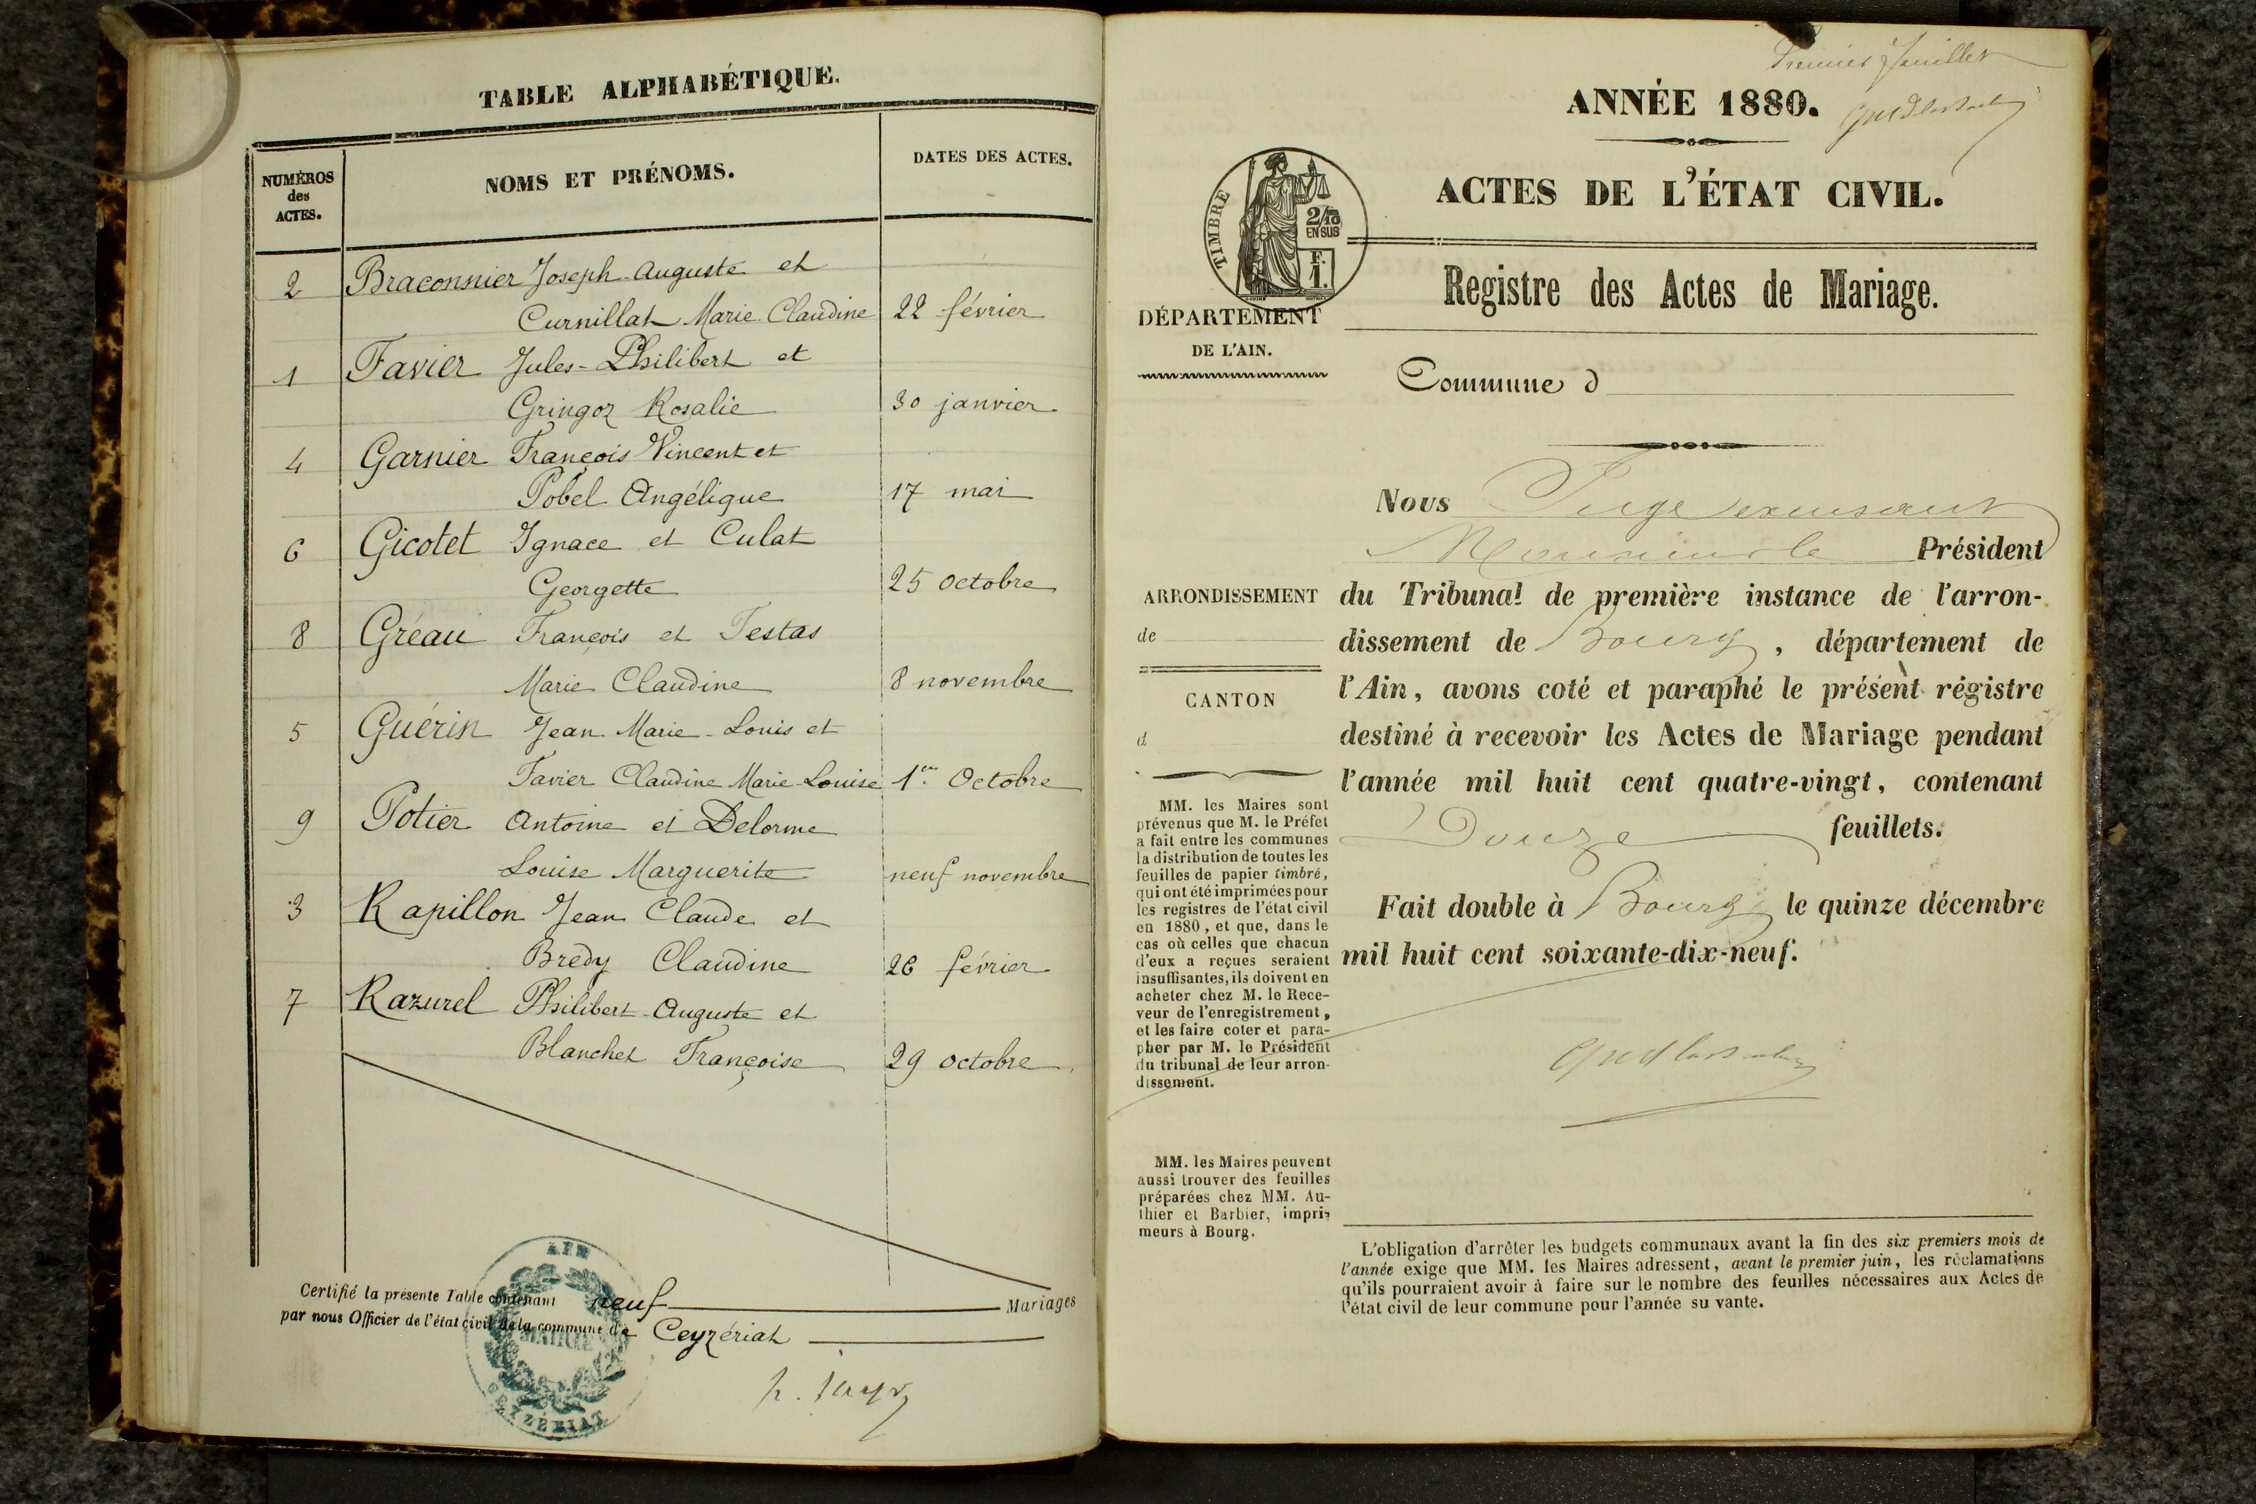 TABLE ALPHABÉTIQUE.
NUMÉROS
des
ACTES.
NOMS ET PRÉNOMS.
DATES DES ACTES.
2 Braconnier Joseph-Auguste et
Curnillat Marie Claudine 22 février
1 Favier Jules-Philibert et
Gringoz Rosalie 30 janvier
4 Garnier François Vincent et
Pobel Angélique 17 mai
6 Gicotet Ignace et Culat
Georgette 25 octobre
8 Gréau François et Testas
Marie Claudine 8 novembre
5 Guérin Jean Marie-Louis et
Favier Claudine Marie-Louise 1er Octobre
9 Potier Antoine et Delorme
Louise Marguerite neuf novembre
3 Rapillon Jean Claude et
Bredy Claudine 26 février
7 Razurel Philibert-Auguste et
Blanchet Françoise 29 octobre
Certifié la présente Table contenant neuf Mariages
par nous Officier de l'état civil de la commune de Ceyzériat
AIN
MAIRIE
CEYZÉRIAT
Premier feuillet
ANNÉE 1880.
ACTES DE L'ÉTAT CIVIL.
TIMBRE
2/10
EN SUS
F.
1.
Registre des Actes de Mariage.
DÉPARTEMENT
DE L'AIN.
Commune d
Nous Juge
Monsieur le Président
ARRONDISSEMENT
de
CANTON
d
du Tribunal de première instance de l'arron-
dissement de Bourg, département de
l'Ain, avons coté et paraphé le présent régistre
destiné à recevoir les Actes de Mariage pendant
l'année mil huit cent quatre-vingt, contenant
Douze feuillets.
Fait double à Bourg le quinze décembre
mil huit cent soixante-dix-neuf.
MM. les Maires sont
prévenus que M. le Préfet
a fait entre les communes
la distribution de toutes les
feuilles de papier timbré,
qui ont été imprimées pour
les registres de l'état civil
en 1880, et que, dans le
cas où celles que chacun
d'eux a reçues seraient
insuffisantes, ils doivent en
acheter chez M. le Rece-
veur de l'enregistrement,
et les faire coter et para-
pher par M. le Président
du tribunal de leur arron-
dissement.
MM. les Maires peuvent
aussi trouver des feuilles
préparées chez MM. Au-
thier et Barbier, impri-
meurs à Bourg.
L'obligation d'arrêter les budgets communaux avant la fin des six premiers mois de
l'année exige que MM. les Maires adressent, avant le premier juin, les réclamations
qu'ils pourraient avoir à faire sur le nombre des feuilles nécessaires aux Actes de
l'état civil de leur commune pour l'année su vante.